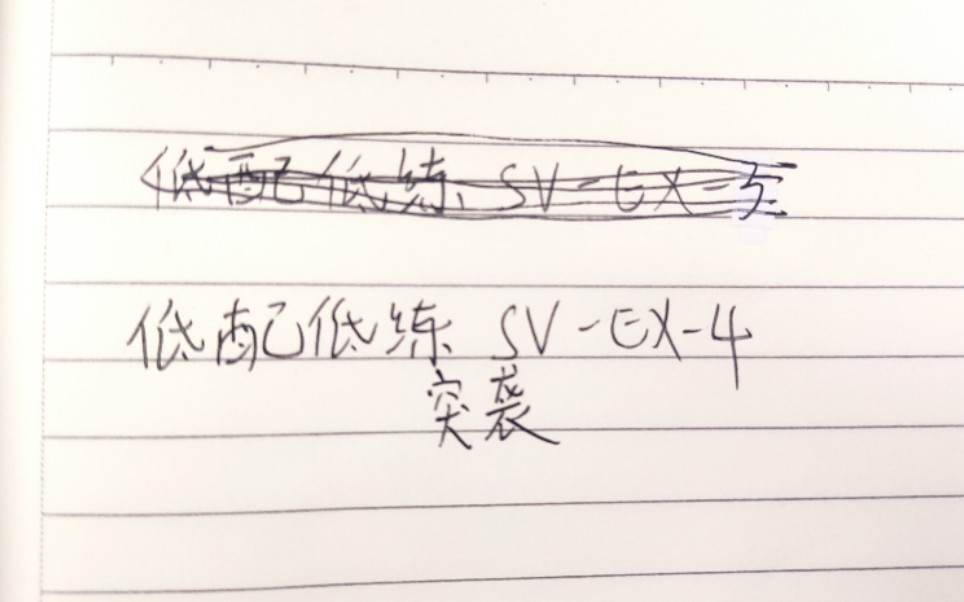 低配低练 SV-EX-5
低配低练 SV-EX-4
突袭